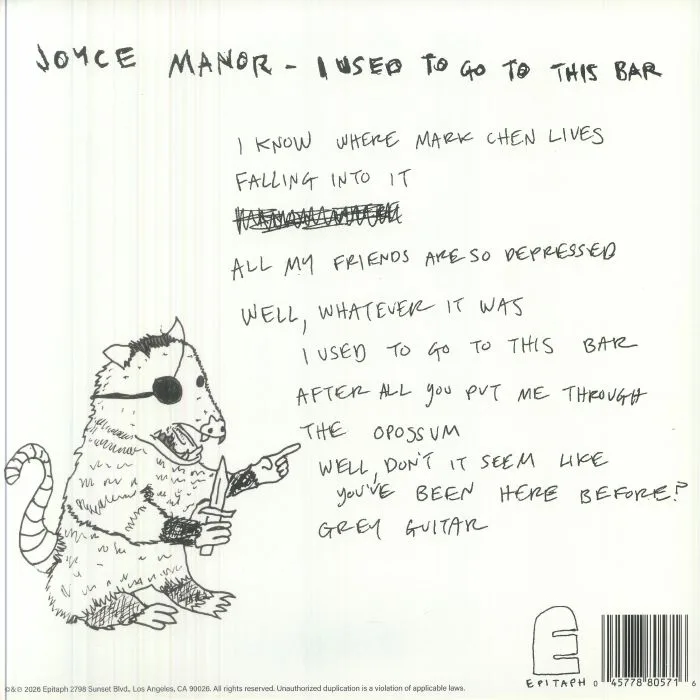 JOYCE MANOR - I USED TO GO TO THIS BAR
I KNOW WHERE MARK CHEN LIVES
FALLING INTO IT
ALL MY FRIENDS ARE SO DEPRESSED
WELL, WHATEVER IT WAS
I USED TO GO TO THIS BAR
AFTER ALL YOU PUT ME THROUGH
THE OPOSSUM
WELL, DON'T IT SEEM LIKE
YOU'VE BEEN HERE BEFORE?
GREY GUITAR
E
EPITAPH
0 45778 80571 6
℗&© 2026 Epitaph 2798 Sunset Blvd., Los Angeles, CA 90026. All rights reserved. Unauthorized duplication is a violation of applicable laws.